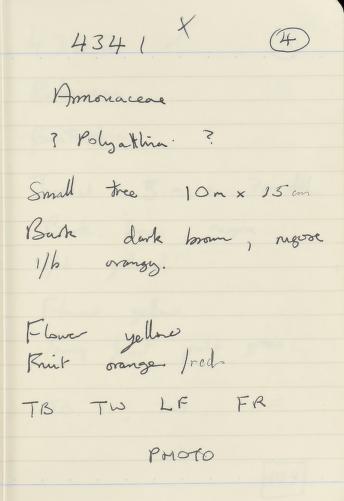 4341 X 4
Annonaceae
? Polyalthia. ?
Small tree 10m x 15cm
Bark dark brown, rugose
1/b orangy.
Flower yellow
Fruit orange/red
TB TW LF FR
PHOTO